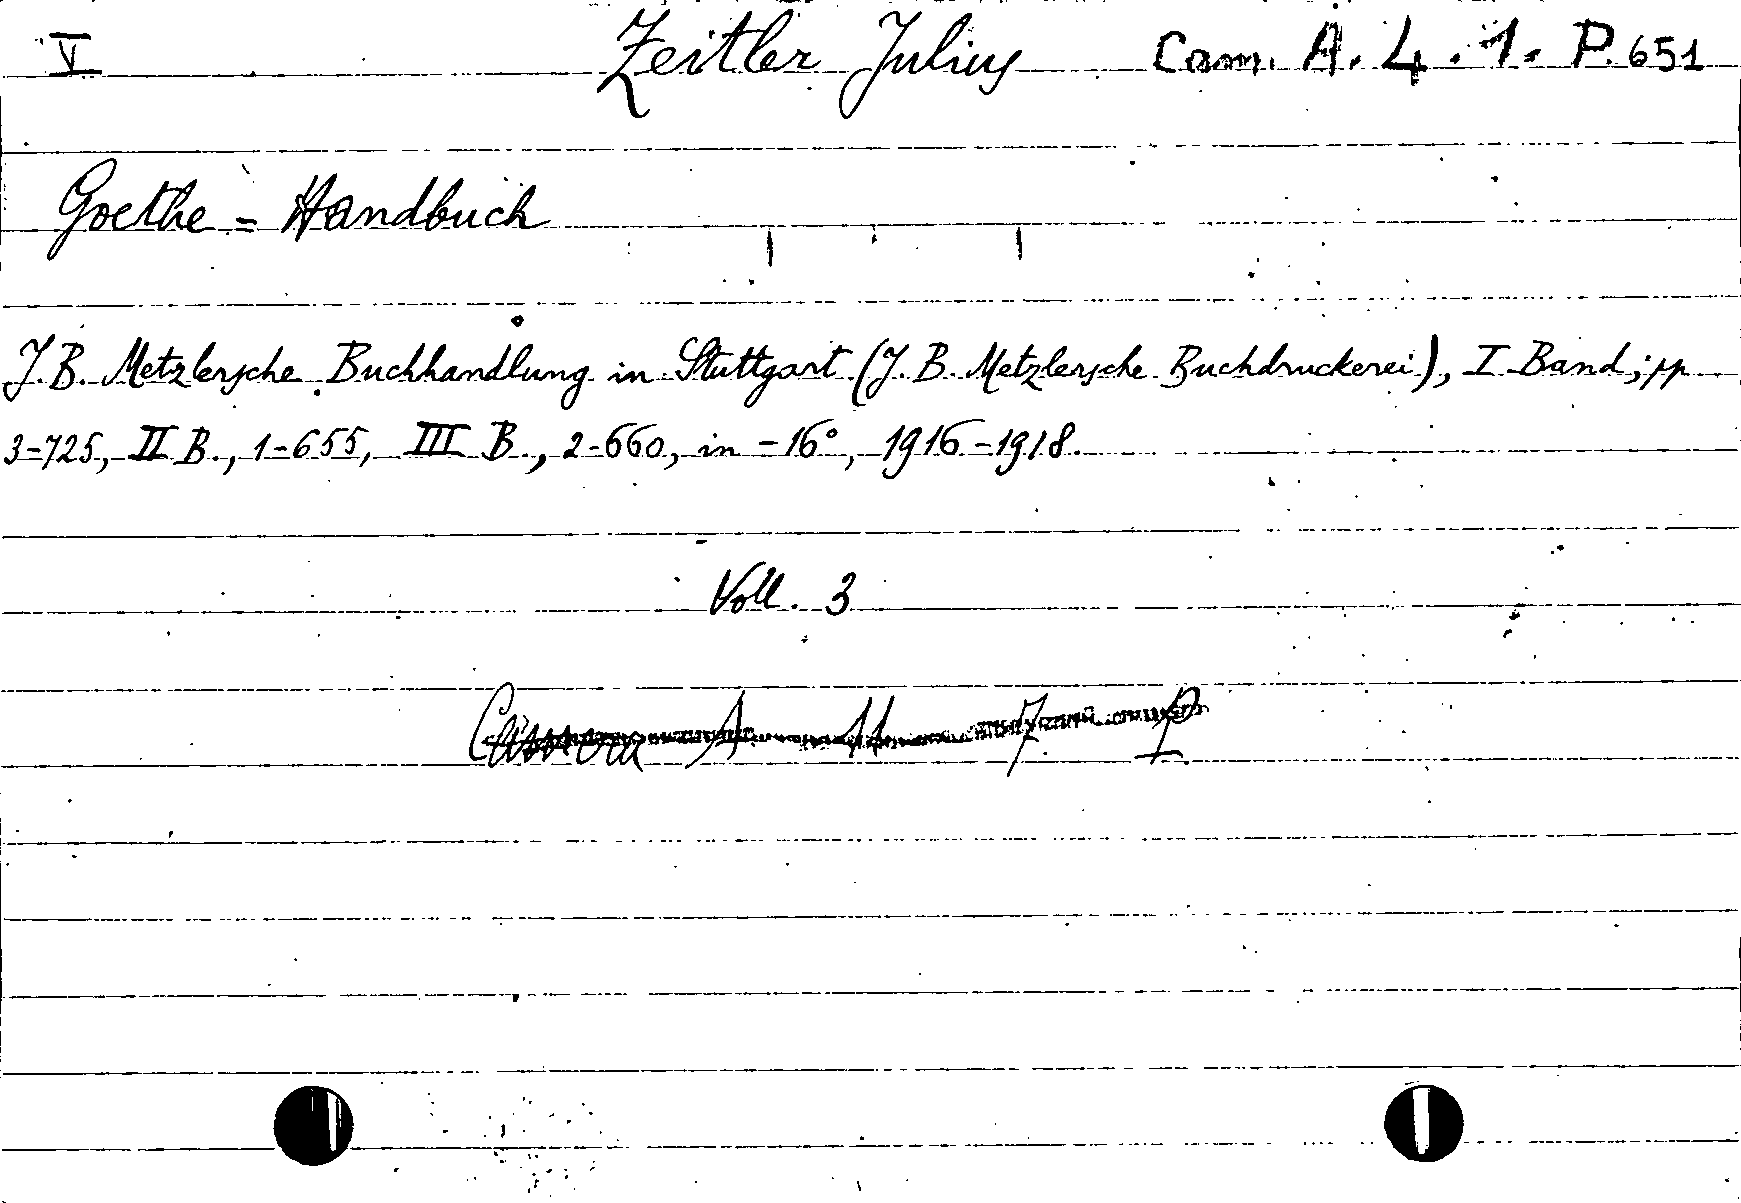 V Zeitler Julius Cam. A. 4. 1. P. 651
Goethe = Handbuch
J. B. Metzlersche Buchhandlung in Stuttgart (J. B. Metzlersche Buchdruckerei), I Band; pp
3-725, II B., 1-655, III B., 2-660, in -16°, 1916-1918.
Voll. 3
Camera A 11 7 P